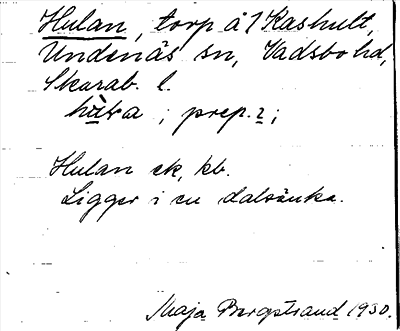 Hulan, torp å 1 Kashult,
Undenäs sn, Vadsbo hd,
Skarab. l.
; prep. i;
Hulan ek, kb.
Ligger i en dalsänka.
Maja Bergstrand 1930.